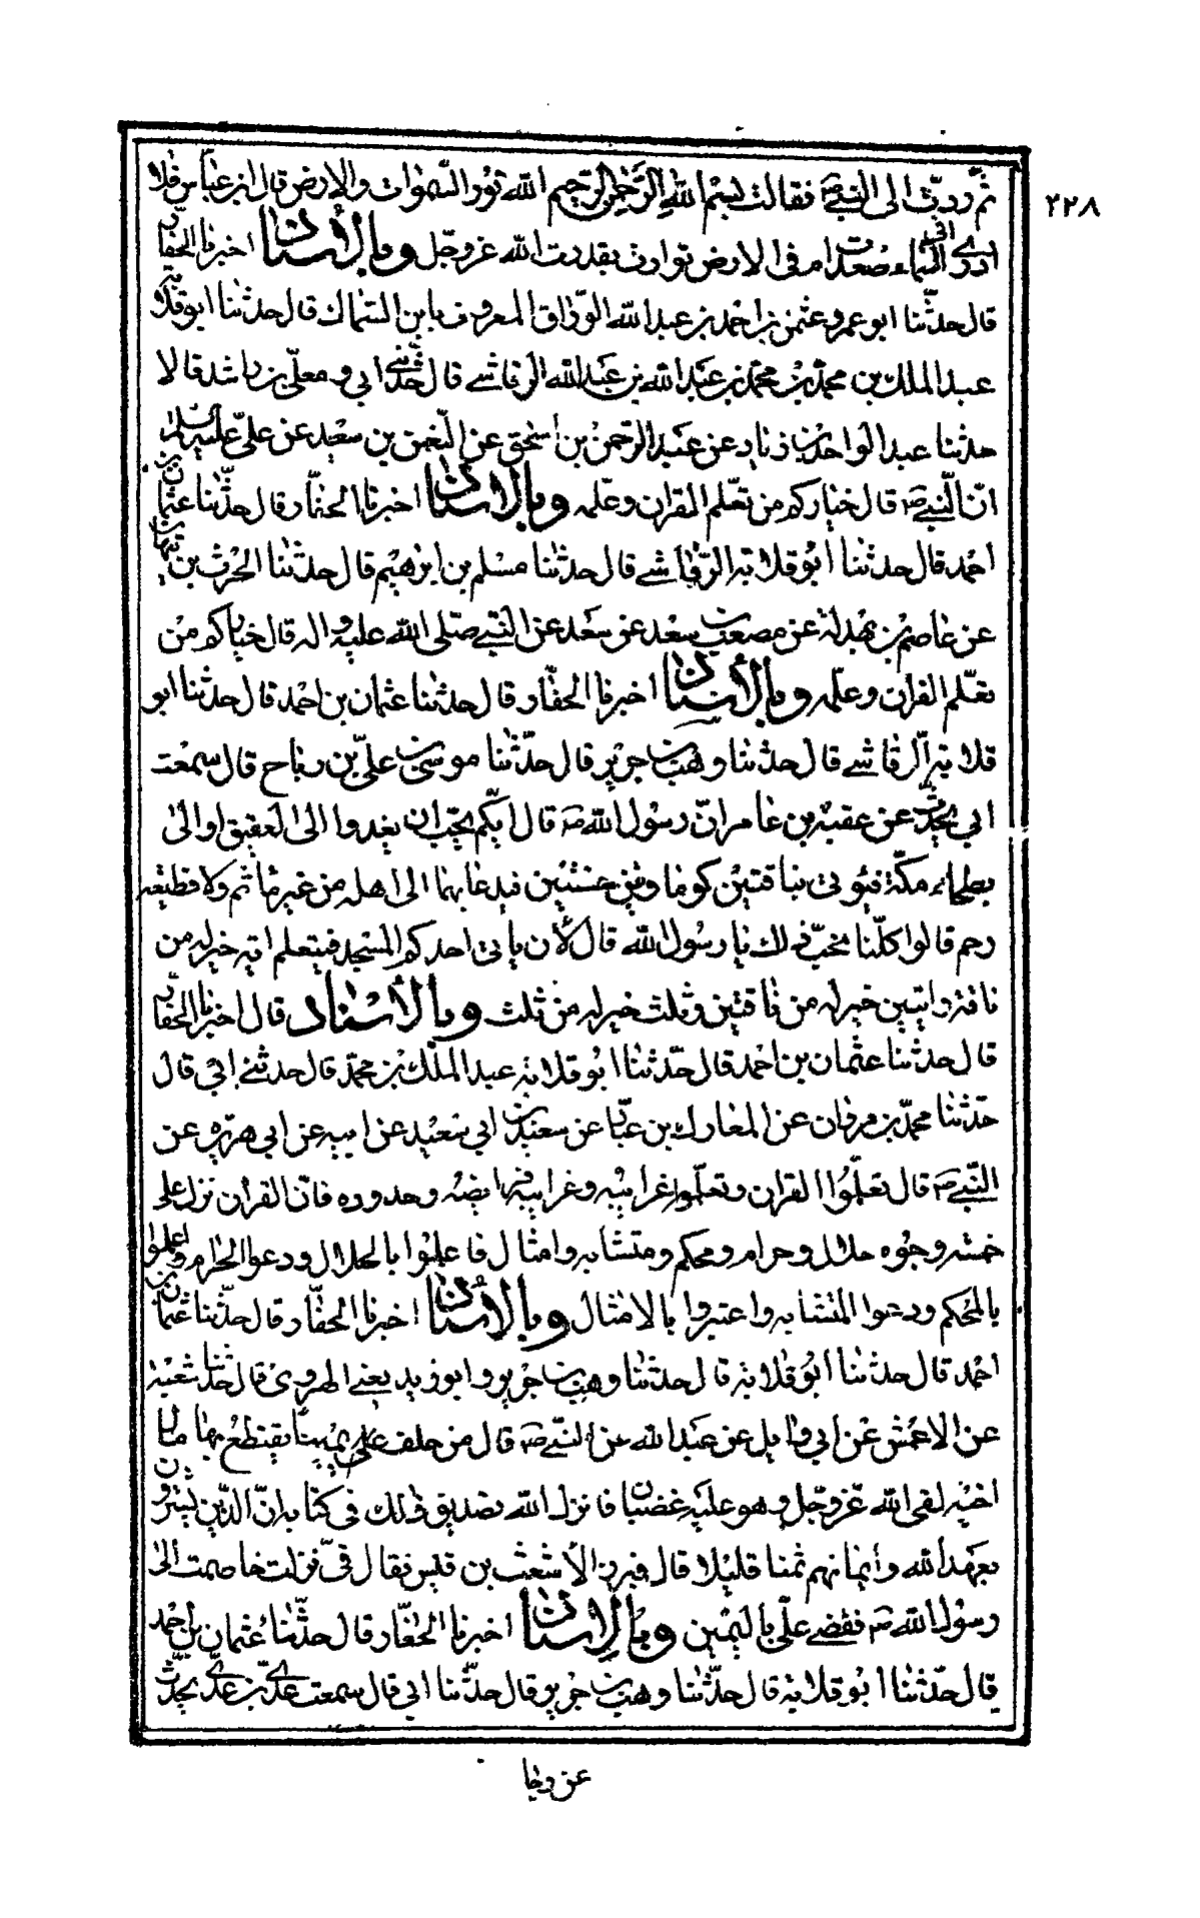 ٢٢٨
ثم ردت الى النبي ص فقالت بسم الله الرحمن الرحيم الله نور السموات والارض قال ابن عباس فلا
ادري افي السماء صعدت ام في الارض توارت بقدرت الله عز وجل وبالاسناد اخبرنا الحفار
قال حدثنا ابو عمرو عثمن بن احمد بن عبد الله الوراق المعروف بابن السماك قال حدثنا ابو قلابة
عبد الملك بن محمد بن محمد بن عبد الله بن عبد الله الرقاشي قال حدثني ابي ومعلى بن راشد قالا
حدثنا عبد الواحد بن زياد عن عبد الرحمن بن اسحق عن النعمن بن سعيد عن علي عليه السلام
ان النبي ص قال خياركم من تعلم القران وعلمه وبالاسناد اخبرنا الحفار قال حدثنا عثمان بن
احمد قال حدثنا ابو قلابة الرقاشي قال حدثنا مسلم بن ابرهيم قال حدثنا الحرث بن نبهان
عن عاصم بن بهدلة عن مصعب بن سعد عن سعد عن النبي صلى الله عليه واله قال خياركم من
تعلم القران وعلمه وبالاسناد اخبرنا الحفار قال حدثنا عثمان بن احمد قال حدثنا ابو
قلابة الرقاشي قال حدثنا وهب بن جرير قال حدثنا موسى بن علي بن رباح قال سمعت
ابي يحدث عن عقبة بن عامر ان رسول الله ص قال ايكم يحب ان يغدوا الى العقيق او الى
بطحاء مكة فيؤتى بناقتين كوماوين حسنتين فيدعا بهما الى اهله من غير ماثم ولا قطيعة
رحم قالوا كلنا يحب ذلك يا رسول الله قال لأن ياتي احدكم المسجد فيتعلم اية خير له من
ناقة واثنتين خير له من ناقتين وثلث خير له من ثلث وبالاسناد قال اخبرنا الحفار
قال حدثنا عثمان بن احمد قال حدثنا ابو قلابة عبد الملك بن محمد قال حدثني ابي قال
حدثنا محمد بن مروان عن المعارك بن عباد عن سعيد بن ابي سعيد عن ابيه عن ابي هريره عن
النبي ص قال تعلموا القران وتعلموا غرائبه وغرائبه فرايضه وحدوده فان القران نزل على
خمسة وجوه حلال وحرام ومحكم ومتشابه وامثال فاعملوا بالحلال ودعوا الحرام واعملوا
بالمحكم ودعوا المتشابه واعتبروا بالامثال وبالاسناد اخبرنا الحفار قال حدثنا عثمان بن
احمد قال حدثنا ابو قلابة قال حدثنا وهب بن جرير وابو زيد يعني الهروي قال حدثنا شعبة
عن الاعمش عن ابي وايل عن عبد الله عن النبي ص قال من حلف على يمين يقتطع بها مال
اخيه لقى الله عز وجل وهو عليه غضبان فانزل الله تصديق ذلك في كتابه ان الذين يشترون
بعهد الله وايمانهم ثمنا قليلا قال فبرز الاشعث بن قيس فقال في نزلت خاصمت الى
رسول الله ص فقضى علي باليمين وبالاسناد اخبرنا الحفار قال حدثنا عثمان بن احمد
قال حدثنا ابو قلابة قال حدثنا وهب بن جرير قال حدثنا ابي قال سمعت عدي بن عدي يحدث
عن رجا